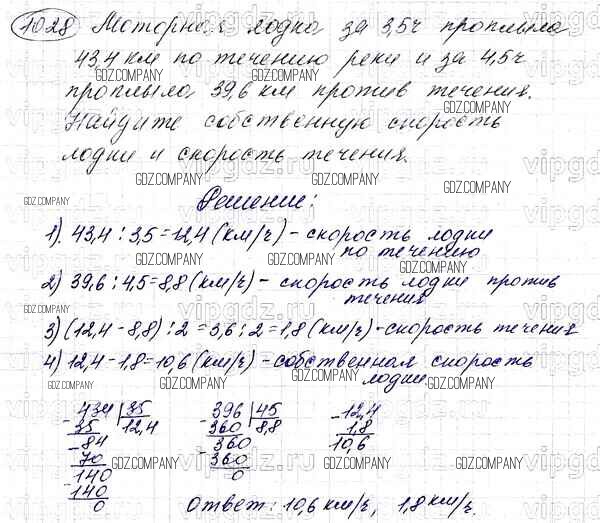 1028 Моторная лодка за 3,5ч проплыла
43,4 км по течению реки и за 4,5ч
проплыла 39,6 км против течения.
Найдите собственную скорость
лодки и скорость течения.
Решение:
1). 43,4 : 3,5 = 12,4 (км/ч) - скорость лодки
по течению
2) 39,6 : 4,5 = 8,8 (км/ч) - скорость лодки против
течения
3) (12,4 - 8,8) : 2 = 3,6 : 2 = 1,8 (км/ч) - скорость течения
4) 12,4 - 1,8 = 10,6 (км/ч) - собственная скорость
лодки
- 434 | 35 - 396 | 45 - 12,4
35 12,4 360 8,8 1,8
- 84 - 360 10,6
70 360
140 0
- 140
0
Ответ: 10,6 км/ч, 1,8 км/ч.
GDZ.COMPANY
vipgdz.ru